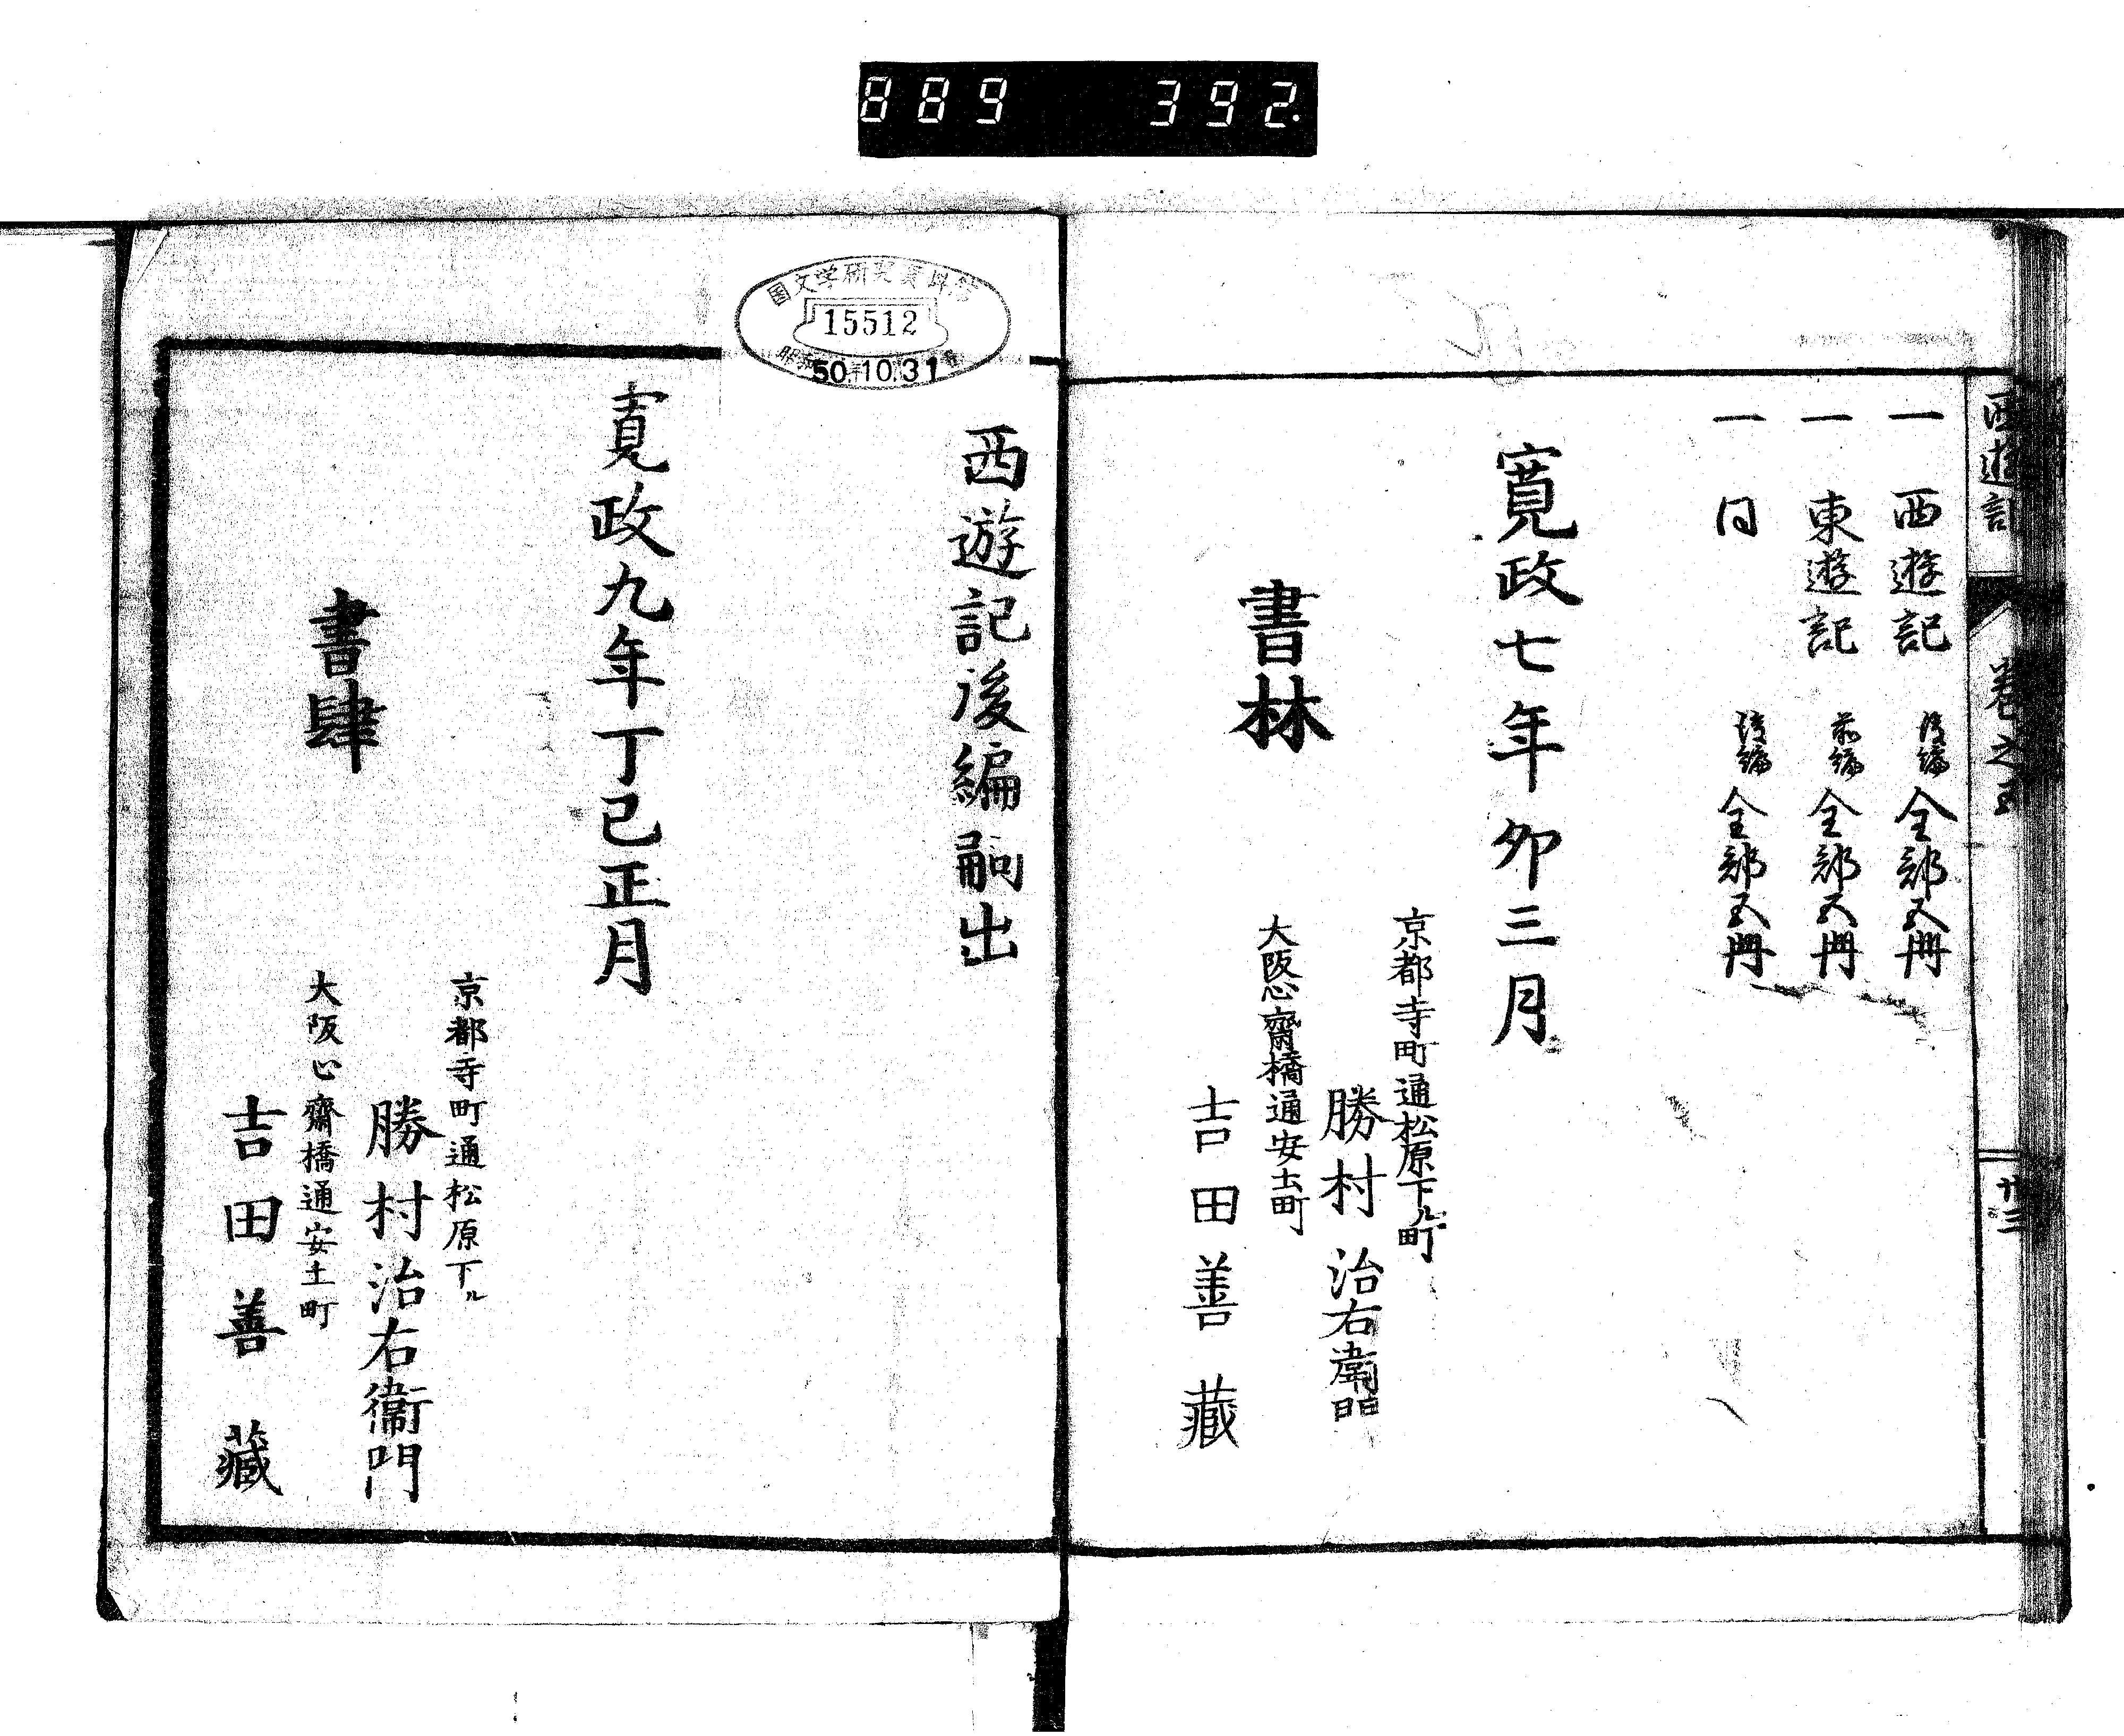 889 392.
西遊記
卷之五
廿三
一 西遊記 後編 全部五冊
一 東遊記 前編 全部五冊
一 同 後編 全部五冊
寛政七年卯三月
書林
京都寺町通松原下ル町
勝村治右衛門
大阪心齋橋通安土町
吉田善藏
国文学研究資料館
15512
50.10.31
西遊記後編嗣出
寛政九年丁巳正月
書肆
京都寺町通松原下ル
勝村治右衛門
大阪心齋橋通安土町
吉田善藏